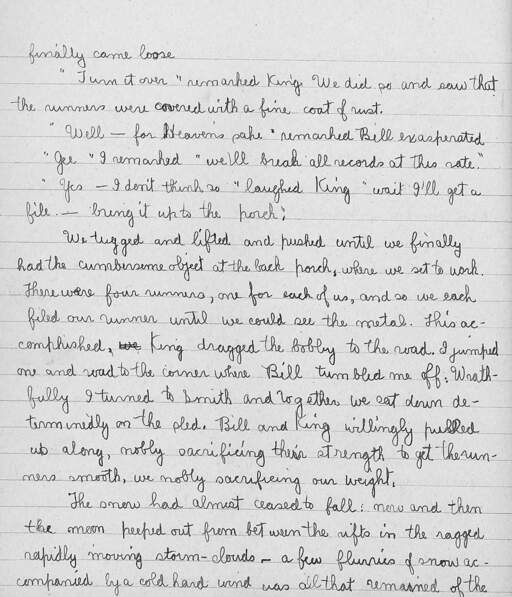 finally came loose
" Turn it over " remarked King. We did so and saw that
the runners were covered with a fine coat of rust.
" Well — for Heavens sake " remarked Bill exasperated
" Gee " I remarked " we'll break all records at this rate."
" Yes — I don't think so " laughed King " wait I'll get a
file. — bring it up to the porch;
We tugged and lifted and pushed until we finally
had the cumbersome object at the back porch, where we set to work.
There were four runners, one for each of us, and so we each
filed our runner until we could see the metal. This ac-
complished, King dragged the bobby to the road. I jumped
one and road to the corner where Bill tumbled me off. Wrath-
fully I turned to Smith and together we sat down de-
terminedly on the sled. Bill and King willingly pulled
us along, nobly sacrificing their strength to get the run-
ners smooth, we nobly sacrificing our weight.
The snow had almost ceased to fall: now and then
the moon peeped out from between the rifts in the ragged
rapidly moving storm-clouds — a few flurries of snow ac-
companied by a cold hard wind was all that remained of the